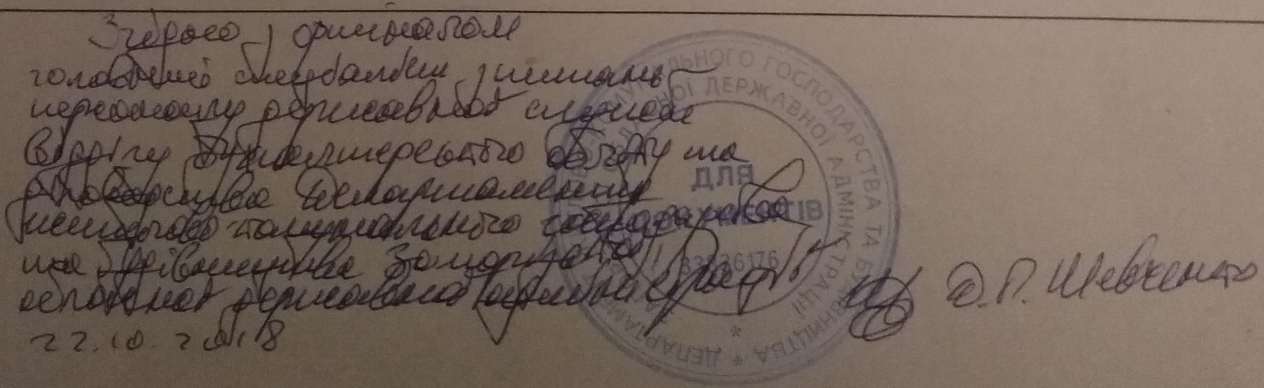 Згідно з оригіналом
головний спеціаліст з питань
персоналу державної служби
відділу бухгалтерського обліку та
Департаменту
житлово-комунального господарства
та будівництва Запорізької
обласної державної адміністрації
Д.Г. Шевченко
22.10.2018
КОМУНАЛЬНОГО ГОСПОДАРСТВА ТА БУДІВНИЦТВА * ДЕПАРТАМЕНТ
ДЕРЖАВНОЇ АДМІНІСТРАЦІЇ
ДЛЯ
ДОКУМЕНТІВ